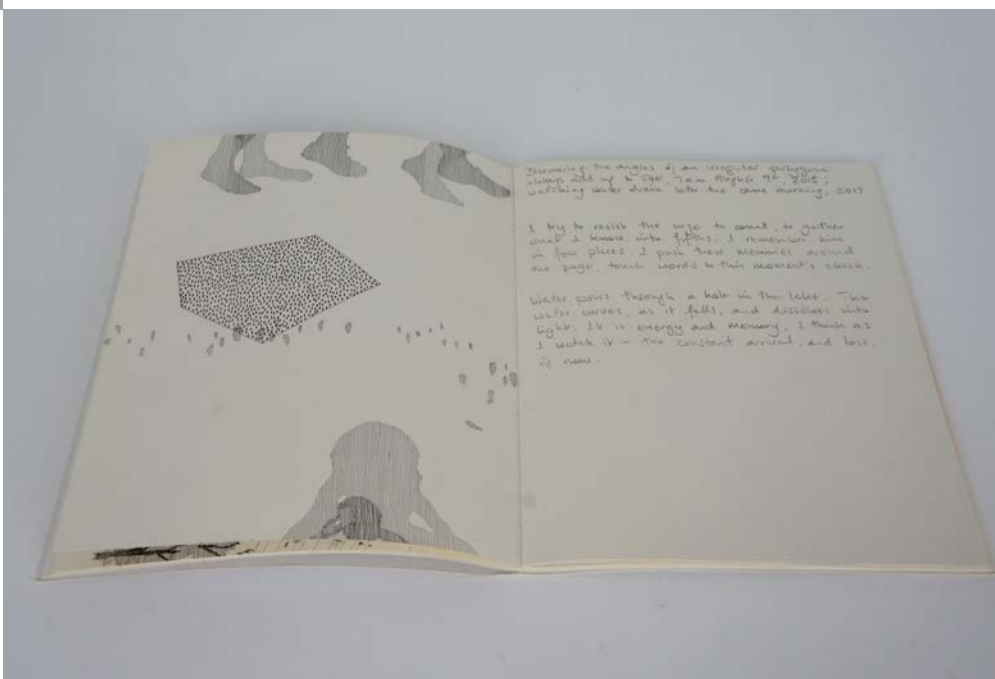 Discovering the angles of an irregular pentagon
always add up to 540, 7am August 9th, 2018;
watching water drain later the same morning, 2017
I try to resist the urge to count, to gather
what I know into fifths, I remember him
in four places. I push these memories around
one page, touch words to this moment's cheek.
Water pours through a hole in the lake. The
water curves, as it falls, and dissolves into
light. It is energy and memory, I think as
I watch it – the constant arrival, and loss,
of now.